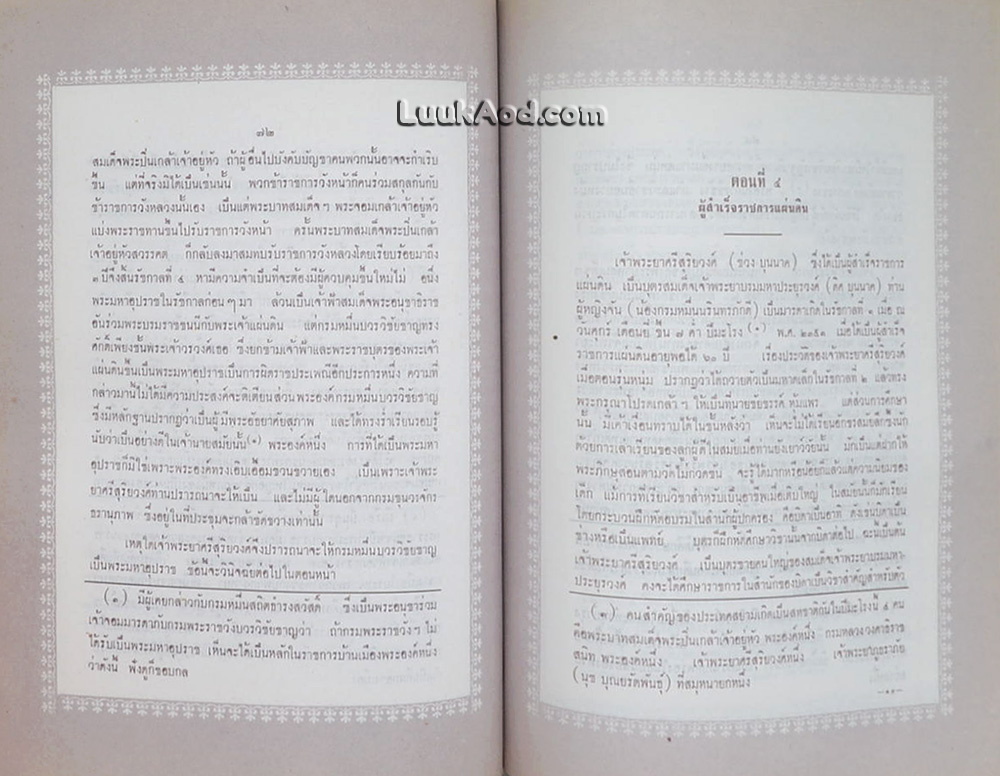 LuukAod.com
๗๒
สมเด็จพระปิ่นเกล้าเจ้าอยู่หัว ถ้าผู้อื่นไปบังคับบัญชาคนพวกนั้นอาจจะกำเริบ
ขึ้น แต่ที่จริงมิได้เป็นเช่นนั้น พวกข้าราชการวังหน้าก็คนร่วมสกุลกันกับ
ข้าราชการวังหลวงนั้นเอง เป็นแต่พระบาทสมเด็จฯ พระจอมเกล้าเจ้าอยู่หัว
แบ่งพระราชทานขึ้นไปรับราชการวังหน้า ครั้นพระบาทสมเด็จพระปิ่นเกล้า
เจ้าอยู่หัวสวรรคต ก็กลับลงมาสมทบรับราชการวังหลวงโดยเรียบร้อยมาถึง
๓ ปีจึงสิ้นรัชกาลที่ ๔ หามีความจำเป็นที่จะต้องมีผู้ควบคุมขึ้นใหม่ไม่ อนึ่ง
พระมหาอุปราชในรัชกาลก่อน ๆ มา ล้วนเป็นเจ้าฟ้าสมเด็จพระอนุชาธิราช
อันร่วมพระบรมราชชนนีกับพระเจ้าแผ่นดิน แต่กรมหมื่นบวรวิชัยชาญทรง
ศักดิ์เพียงชั้นพระเจ้าวรวงศ์เธอ ซึ่งยกข้ามเจ้าฟ้าและพระราชบุตรของพระเจ้า
แผ่นดินขึ้นเป็นพระมหาอุปราชเป็นการผิดราชประเพณีอีกประการหนึ่ง ความที่
กล่าวมานี้ไม่ได้มีความประสงค์จะติเตียนส่วนพระองค์กรมหมื่นบวรวิชัยชาญ
ซึ่งมีหลักฐานปรากฏว่าเป็นผู้มีพระอัธยาศัยสุภาพ และได้ทรงร่ำเรียนรอบรู้
นับว่าเป็นอย่างดีในเจ้านายสมัยนั้น(๑) พระองค์หนึ่ง การที่ได้เป็นพระมหา
อุปราชก็มิใช่เพราะพระองค์ทรงเอิบเอื้อมขวนขวายเอง เป็นเพราะเจ้าพระ
ยาศรีสุริยวงศ์ท่านปรารถนาจะให้เป็น และไม่มีผู้ใดนอกจากกรมขุนวรจักร
ธรานุภาพ ซึ่งอยู่ในที่ประชุมจะกล้าขัดขวางเท่านั้น
เหตุใดเจ้าพระยาศรีสุริยวงศ์จึงปรารถนาจะให้กรมหมื่นบวรวิชัยชาญ
เป็นพระมหาอุปราช ข้อนี้จะวินิจฉัยต่อไปในตอนหน้า
(๑) มีผู้เคยกล่าวกับกรมหมื่นสถิตธำรงสวัสดิ์ ซึ่งเป็นพระอนุชาร่วม
เจ้าจอมมารดากับกรมพระราชวังบวรวิชัยชาญว่า ถ้ากรมพระราชวังฯ ไม่
ได้รับเป็นพระมหาอุปราช เห็นจะได้เป็นหลักในราชการบ้านเมืองพระองค์หนึ่ง
ว่าดังนี้ ฟังดูก็ชอบกล
ตอนที่ ๔
ผู้สำเร็จราชการแผ่นดิน
เจ้าพระยาศรีสุริยวงศ์ (ช่วง บุนนาค) ซึ่งได้เป็นผู้สำเร็จราชการ
แผ่นดิน เป็นบุตรสมเด็จเจ้าพระยาบรมมหาประยุรวงศ์ (ดิศ บุนนาค) ท่าน
ผู้หญิงจัน (น้องกรมหมื่นนรินทรภักดี) เป็นมารดาเกิดในรัชกาลที่ ๑ เมื่อ ณ
วันศุกร์ เดือนยี่ ขึ้น ๗ ค่ำ ปีมะโรง (๑) พ.ศ. ๒๓๕๑ เมื่อได้เป็นผู้สำเร็จ
ราชการแผ่นดินอายุพอได้ ๖๑ ปี เรื่องประวัติของเจ้าพระยาศรีสุริยวงศ์
เมื่อตอนรุ่นหนุ่ม ปรากฏว่าได้ถวายตัวเป็นมหาดเล็กในรัชกาลที่ ๒ แล้วทรง
พระกรุณาโปรดเกล้าฯ ให้เป็นที่นายชัยขรรค์ หุ้มแพร แต่ส่วนการศึกษา
นั้น มีเค้าเงื่อนทราบได้ในชั้นหลังว่า เห็นจะไม่ได้เรียนอักขรสมัยลึกซึ้งนัก
ด้วยการเล่าเรียนของลูกผู้ดีในสมัยเมื่อท่านยังเยาว์วัยนั้น มักเป็นแต่ฝากให้
พระภิกษุสอนตามวัดไม่กวดขัน จะรู้ได้มากหรือน้อยก็แล้วแต่ความนิยมของ
เด็ก แม้การที่เรียนวิชาสำหรับเป็นอาชีพเมื่อเติบใหญ่ ในสมัยนั้นก็มักเรียน
โดยกระบวนฝึกหัดอบรมในสำนักผู้ปกครอง คือบิดาเป็นอาทิ ดังเช่นบิดาเป็น
ช่างหรือเป็นแพทย์ บุตรก็ฝึกหัดศึกษาวิชานั้นจากบิดาต่อไป ฉะนั้นเป็นต้น
เจ้าพระยาศรีสุริยวงศ์ เป็นบุตรชายคนใหญ่ของสมเด็จเจ้าพระยาบรมมหา-
ประยุรวงศ์ คงจะได้ศึกษาราชการในสำนักของบิดาเป็นวิชาสำคัญสำหรับตัว
(๑) คนสำคัญของประเทศสยามเกิดเป็นสหชาติกันในปีมะโรงนี้ ๔ คน
คือพระบาทสมเด็จพระปิ่นเกล้าเจ้าอยู่หัว พระองค์หนึ่ง กรมหลวงวงศาธิราช
สนิท พระองค์หนึ่ง เจ้าพระยาศรีสุริยวงศ์หนึ่ง เจ้าพระยาภูธราภัย
(นุช บุณยรัตพันธุ์) ที่สมุหนายกหนึ่ง